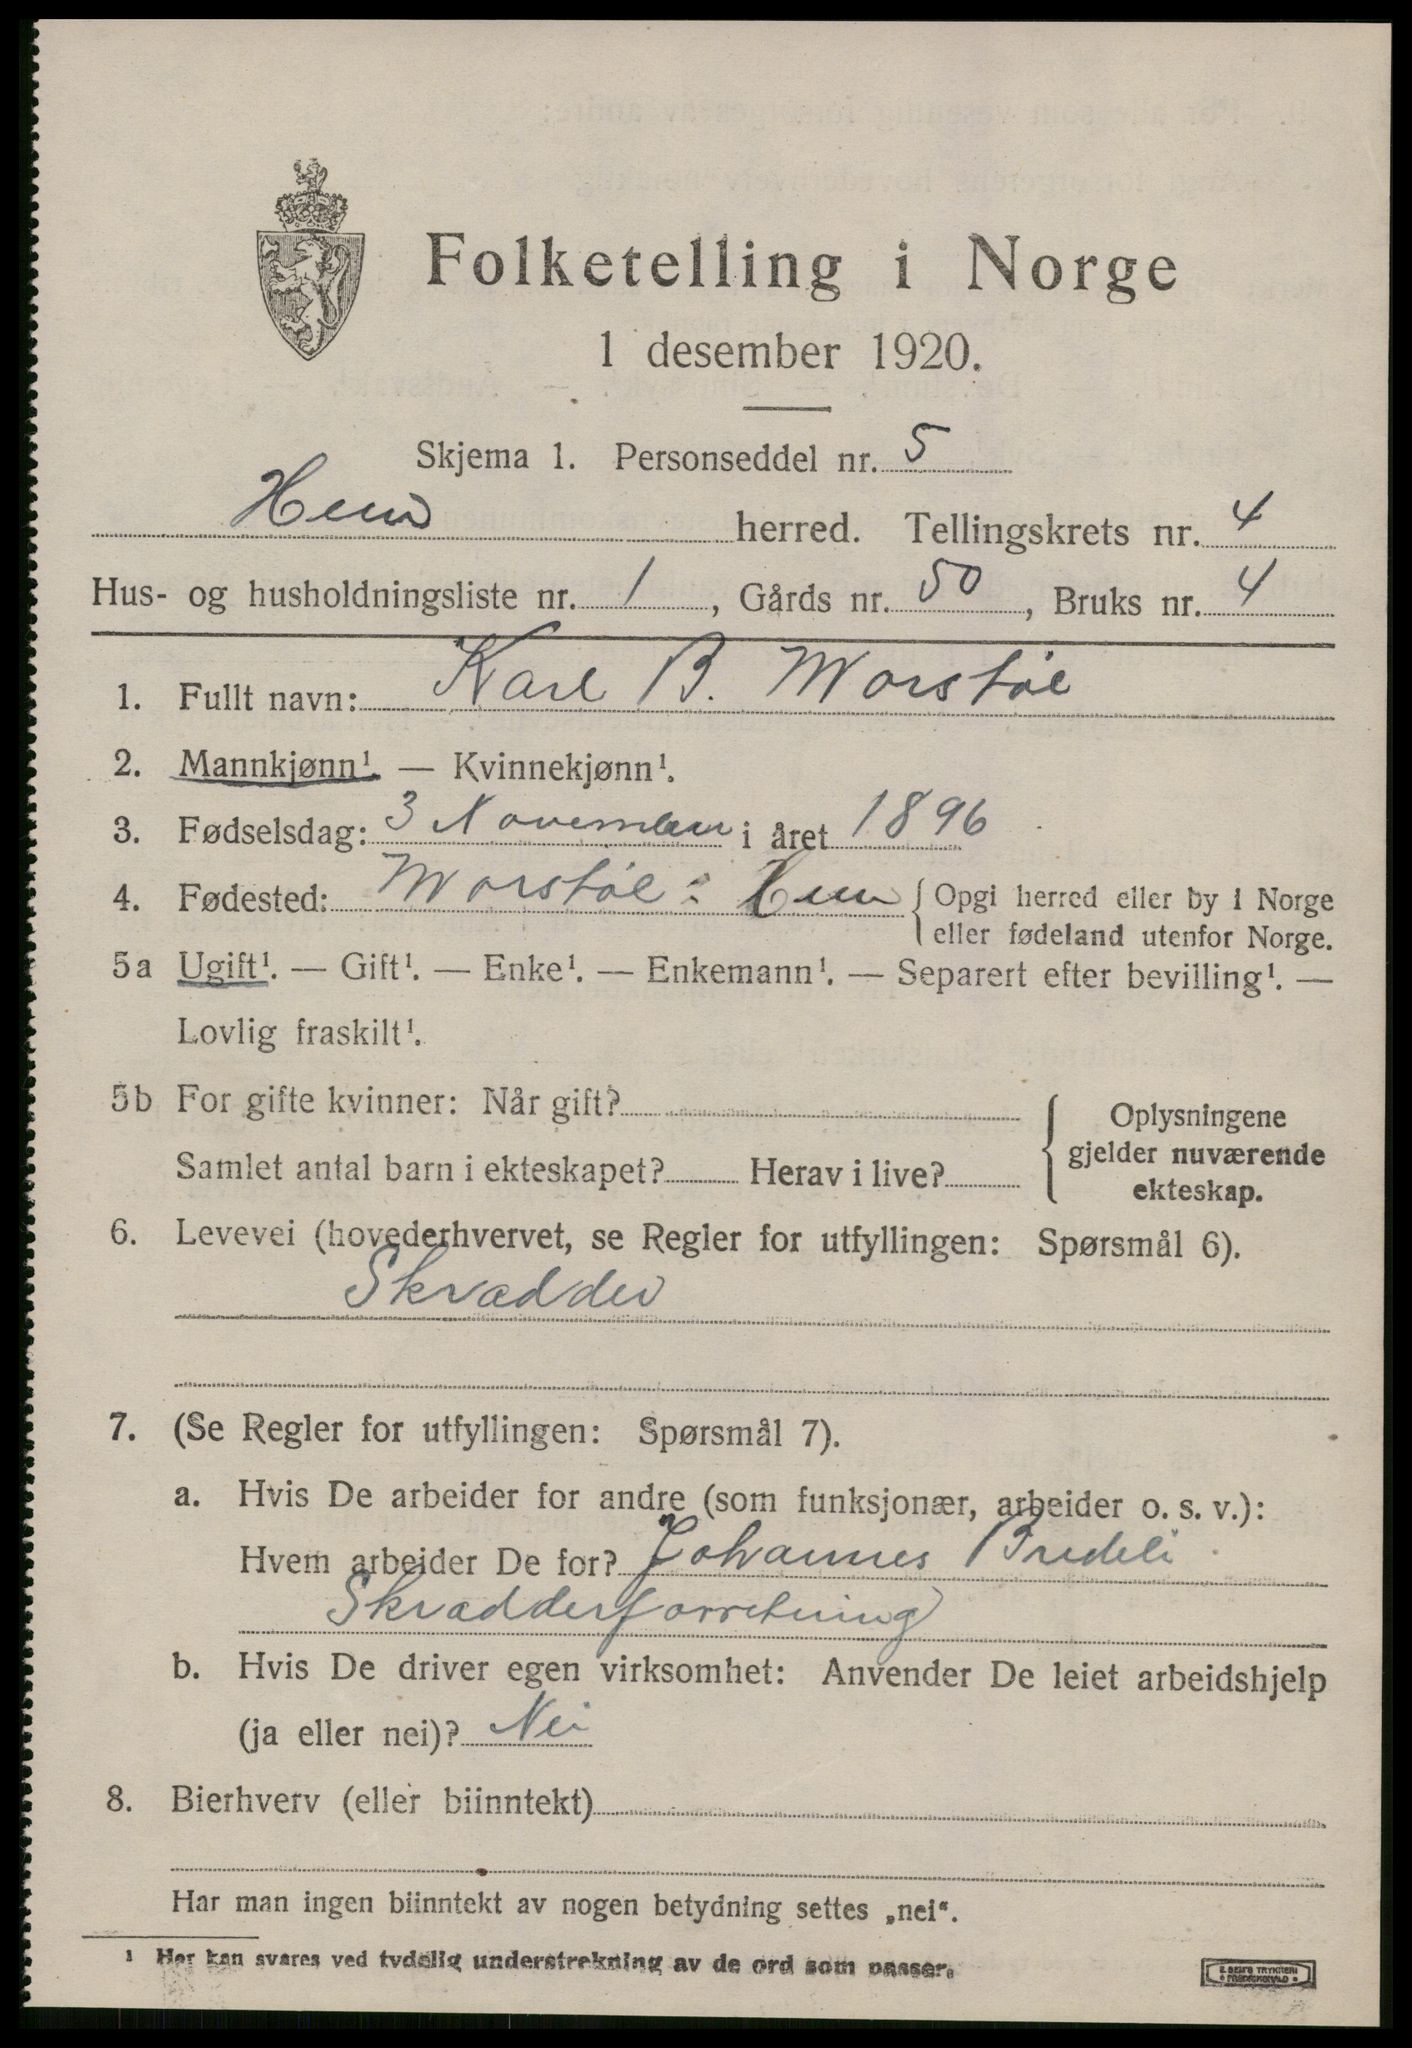 Folketelling i Norge
1 desember 1920.
Skjema 1. Personseddel nr. 5
Hem herred. Tellingskrets nr. 4
Hus- og husholdningsliste nr. 1, Gårds nr. 50, Bruks nr. 4
1. Fullt navn: Karl B. Morstøl
2. Mannkjønn¹. — Kvinnekjønn¹.
3. Fødselsdag: 3 November i året 1896
4. Fødested: Morstøl : Hem { Opgi herred eller by i Norge
eller fødeland utenfor Norge.
5a Ugift¹. — Gift¹. — Enke¹. — Enkemann¹. — Separert efter bevilling¹. —
Lovlig fraskilt¹.
5b For gifte kvinner: Når gift?
Samlet antal barn i ekteskapet? Herav i live?
{ Oplysningene
gjelder nuværende
ekteskap.
6. Levevei (hovederhvervet, se Regler for utfyllingen: Spørsmål 6).
Skrædder
7. (Se Regler for utfyllingen: Spørsmål 7).
a. Hvis De arbeider for andre (som funksjonær, arbeider o. s. v.):
Hvem arbeider De for? Johannes Bredeli
Skrædderforretning
b. Hvis De driver egen virksomhet: Anvender De leiet arbeidshjelp
(ja eller nei)? Nei
8. Bierhverv (eller biinntekt)
Har man ingen biinntekt av nogen betydning settes „nei“.
¹ Her kan svares ved tydelig understrekning av de ord som passer.